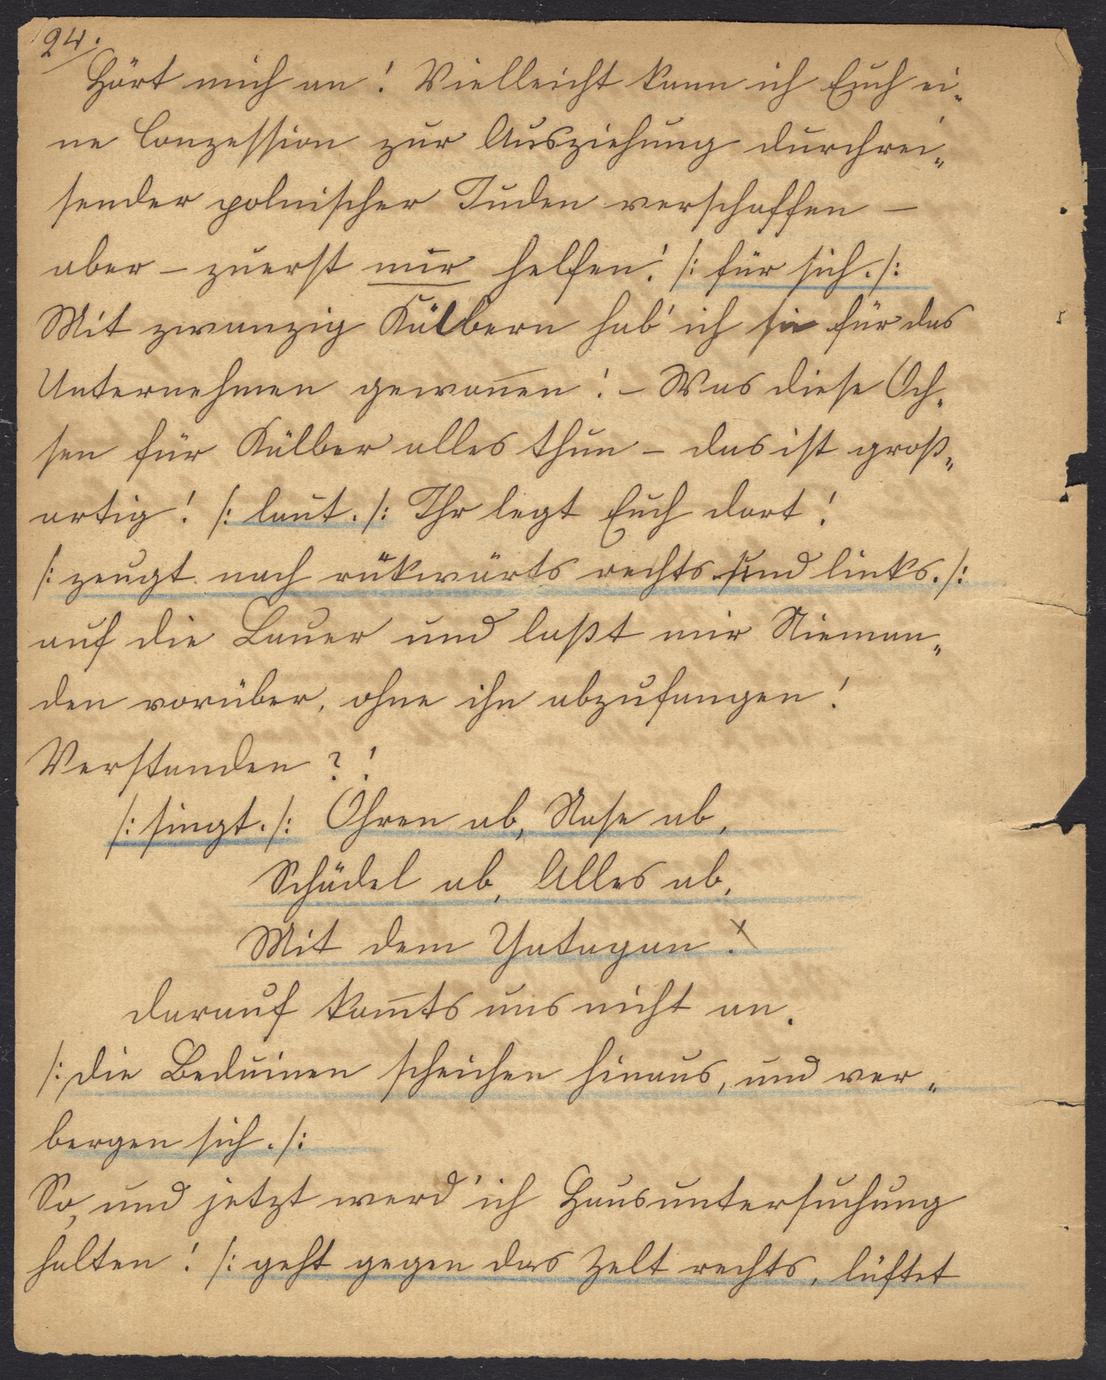 24.
Hört mich an! Vielleicht kann ich Euch ei-
ne Conzession zur Ausziehung durchrei-
sender polnischer Juden verschaffen –
aber – zuerst mir helfen! /: für sich. /:
Mit zwanzig Kälbern hab' ich sie für das
Unternehmen gewonnen! – Was diese Och-
sen für Kälber alles thun – das ist groß-
artig! /: laut. /: Ihr legt Euch dort!
/: zeugt nach rükwärts rechts und links. /:
auf die Lauer und laßt mir Nieman-
den vorüber, ohne ihn abzufangen!
Verstanden?!
/: singt. /: Ohren ab, Nase ab,
Schädel ab, Alles ab,
Mit dem Yatagan.
darauf kom̄ts uns nicht an.
/: die Beduinen schleichen hinaus, und ver-
bergen sich. /:
So, und jetzt werd' ich Hausuntersuchung
halten! /: geht gegen das Zelt rechts, lüftet